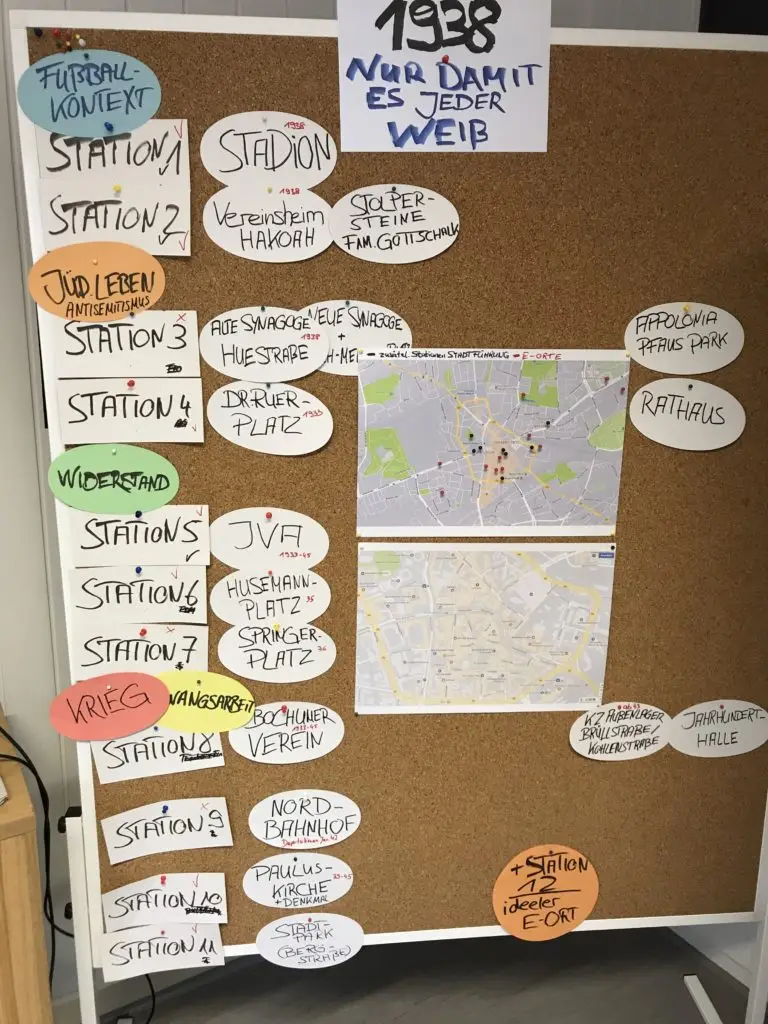 1938
NUR DAMIT
ES JEDER
WEIß
FUßBALL-
KONTEXT
STATION 1
STADION
1938
STATION 2
Vereinsheim
HAKOAH
1938
STOLPER-
STEINE
FAM. GOTTSCHALK
JÜD. LEBEN
ANTISEMITISMUS
STATION 3
ALTE SYNAGOGE
HUESTRAßE
1938
NEUE SYNAGOGE
+
APPOLONIA
PFAUS PARK
zusätzl. Stationen STADTFÜHRUNG - E-ORTE
STATION 4
DR. RUER-
PLATZ
1933
RATHAUS
WIDERSTAND
STATION 5
JVA
1933-45
STATION 6
HUSEMANN-
PLATZ
35
STATION 7
SPRINGER-
PLATZ
36
KRIEG
ZWANGSARBEIT
STATION 8
BOCHUMER
VEREIN
1933-45
ab 43
KZ AUßENLAGER
BRÜLLSTRAßE/
KOHLENSTRAßE
JAHRHUNDERT-
HALLE
STATION 9
NORD-
BAHNHOF
STATION 10
PAULUS-
KIRCHE
+ DENKMAL
33-45
STATION 11
STADT-
PARK
(BERG-
STRAßE)
+ STATION
12
ideeler
E-ORT